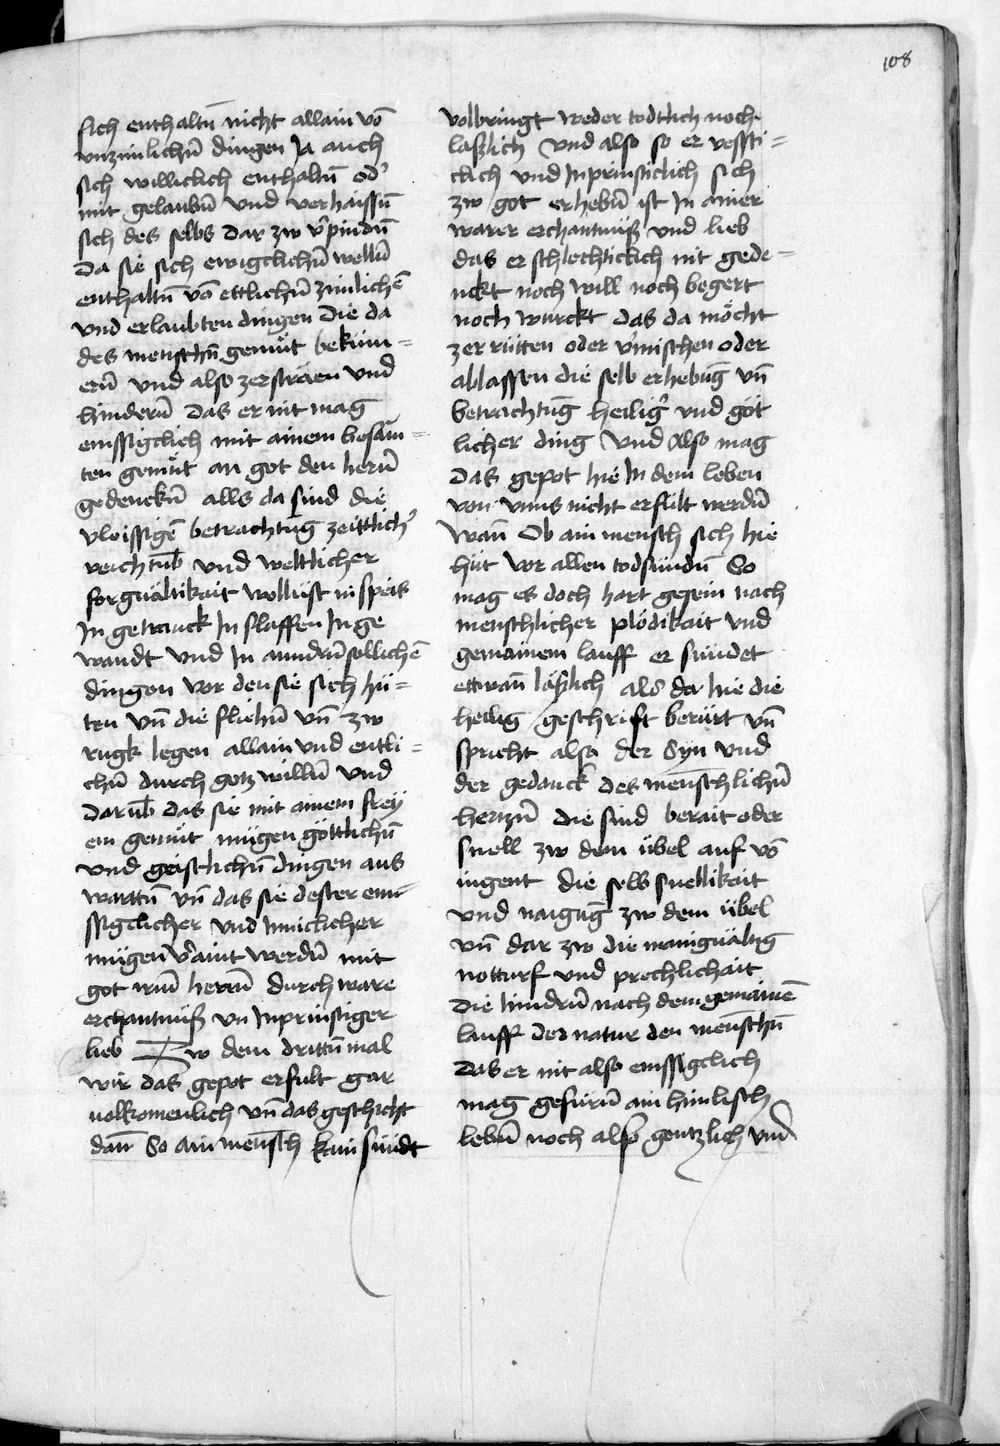 108
sich enthaltn̄ nicht allain vō
vnzimlichn̄ dingen Ja auch
sich willicklich enthaltn̄ od'
mit gelaubn̄ vnd verhaissn̄
sich des selbs dar zw v'pindn̄
Da sie sich ewigclichn̄ welln̄
enthaltn̄ vō ettlichn̄ zimlichē
vnd erlaubten dingen Die da
des menschn̄ gemüt beküm=
ern̄ vnd also zersträen vnd
hindern̄ das er nit mag
emssigclich mit ainem besām=
ten gemüt an got den hern̄
gedenckn̄ alls da sind die
vleissigē betrachtūg zeittlich'
reichtūb vnd weltlicher
forguältikait wollüst in speis
In getranck In slaffen In ge
wandt vnd In anndrn̄ sollichē
dingen vor den sie sich hü=
ten vn̄ die fliehn̄ vn̄ zw
rugk legen allain vnd entli=
chn̄ durch gotz willn̄ vnd
darūb das sie mit ainem frey
em gemüt mügen göttlichn̄
vnd geistlichn̄ dingen aus
warttn̄ vn̄ das sie dester em
ssigclicher vnd Inniclicher
mügen v'aint werdn̄ mit
got irm̄ herrn̄ durch ware
erchantnüß vn Inprünstiger
lieb Zw dem drittn̄ mal
wir das gepot erfült gar
volkomenlich vn̄ das geschicht
dan̄ So ain mensch kain sündt
volbringt weder todtlich noch
laßlich vnd also so er vessti=
clich vnd Inprinsticlich sich
zw got erhebn̄ ist In ainer
warer erchantnüß vnd lieb
das er schlechticlich nit gede=
nckt noch will noch begert
noch wurckt das da möcht
zerrütten oder v'mischen oder
ablassen die selb erhebūg vn̄
betrachtūg heilig' vnd göt
licher ding Vnd Also mag
das gepot hie In dem leben
von vnns nicht erfült werdn̄
wan̄ Ob ain mensch sich hie
hüt vor allen todsündn̄ So
mag es doch hart gegein nach
menschlicher plödikait vnd
gemainem lauff er sündet
ettwan̄ läßlich als da hie die
heilig geschrift berürt vn̄
spricht also der Syn vnd
der gedanck des menschlichn̄
hertzn̄ die sind berait oder
snell zw dem übel auf vō
iugent die selb snellikait
vnd naigūg zw dem übel
vn̄ dar zw die maniguältig
notturf vnd prechlichait
die hindrn̄ nach dem gemainē
lauff der natur den menschn̄
das er nit also emssigclich
mag gefürn̄ ain himlisch
lebn̄ noch also gentzlich vnd